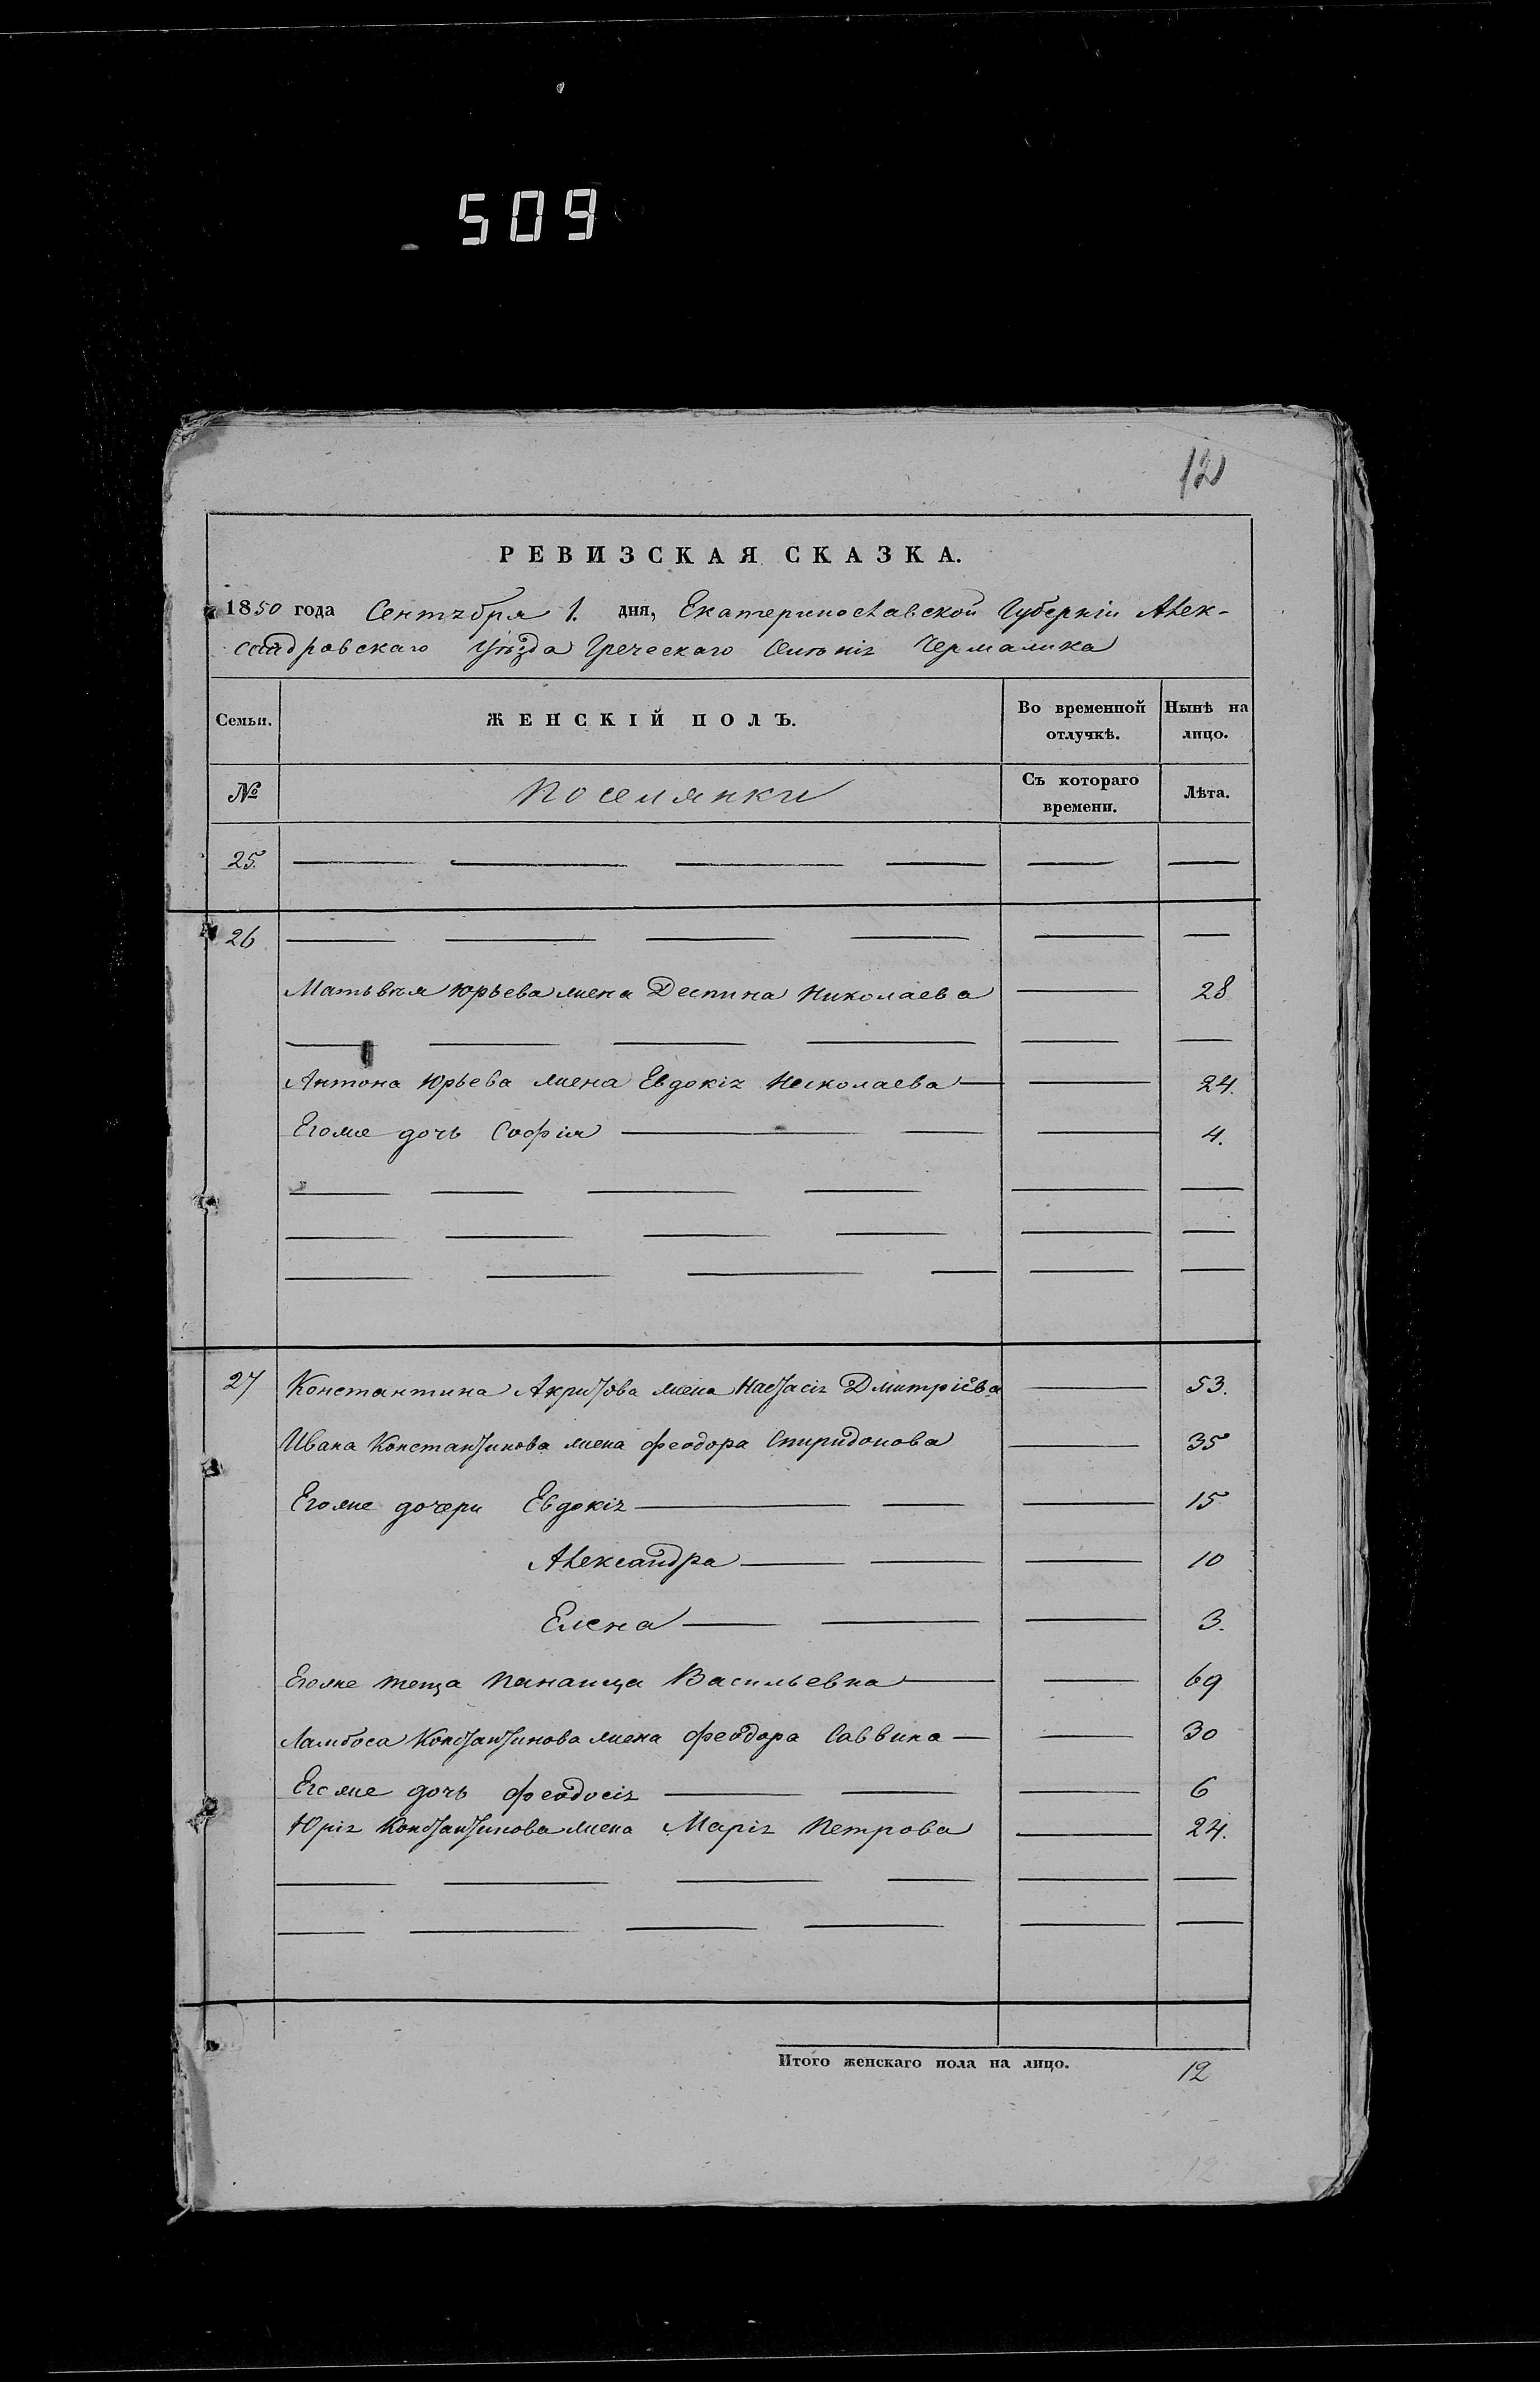 509
12
РЕВИЗСКАЯ СКАЗКА.
1850 года Сентября 1. дня, Екатеринославской Губерніи Алек-
сандровскаго уѣзда Греческаго Селенія Чермалика
Семьи. ЖЕНСКІЙ ПОЛЪ. Во временной отлучкѣ. Нынѣ на лицо.
№ Поселянки Съ котораго времени. Лѣта.
25. — — — — — —
26 — — — — — —
Матьвѣя Юрьева жена Деспина Николаева — 28
— — — — — —
Антона Юрьева жена Евдокія Николаева — — 24.
Егоже дочь Софія — — — 4.
— — — — — —
— — — — — —
— — — — — —
27 Константина Акритова жена Настасія Дмитріева — 53.
Ивана Константинова жена Феодора Спиридонова — 35
Егоже дочери Евдокія — — — 15
Александра — — — 10
Елена — — — 3.
Егоже теща Панаица Васильевна — — 69
Ламбоса Константинова жена Феодора Саввина — — 30
Егоже дочь Феодосія — — — 6
Юрія Константинова жена Марія Петрова — 24.
— — — — — —
— — — — — —
Итого женскаго пола на лицо. 12
12